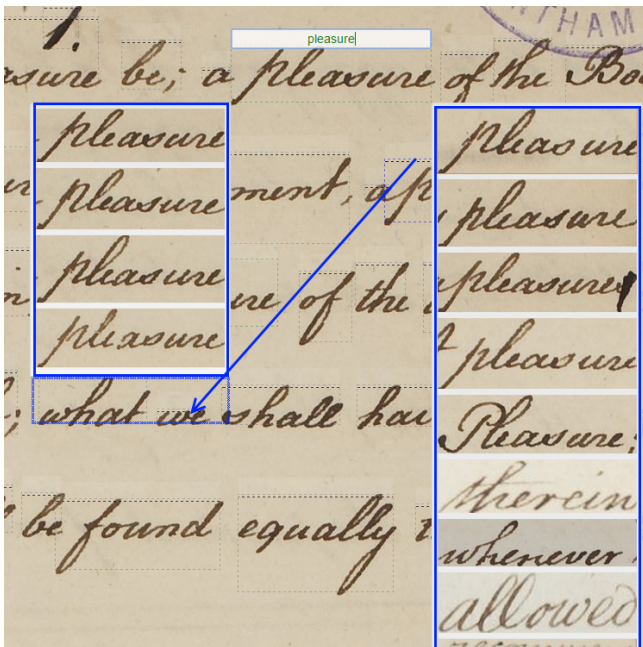 NTHAM
pleasure
asure be; a pleasure of the Bo
pleasure
pleasure
pleasure
pleasure
ment, ap
ure of the
; what we shall hav
be found equally
pleasure
pleasure
pleasure
pleasure
Pleasure;
therein
whenever
allowed